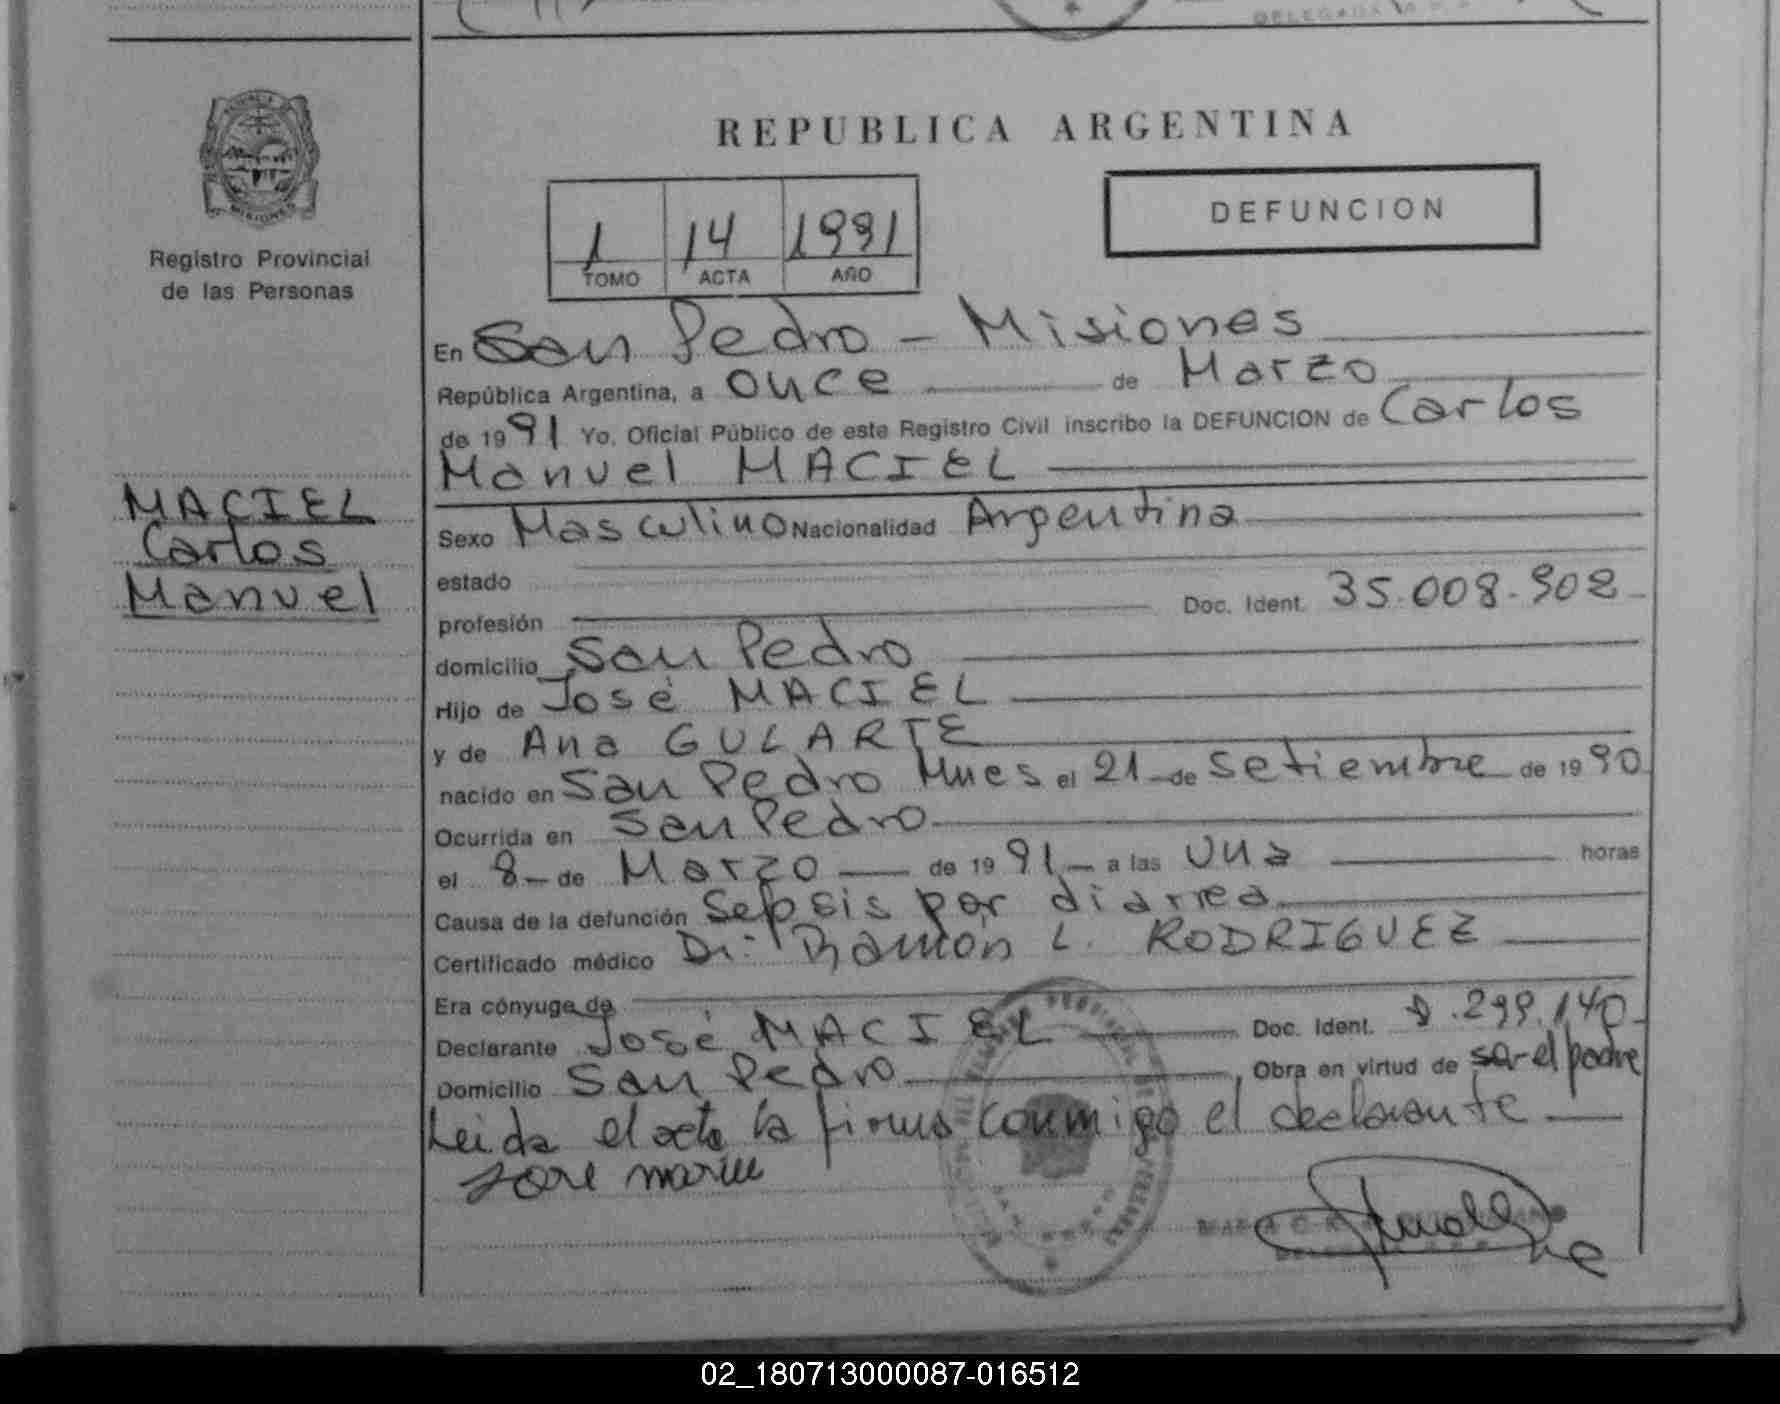 REPUBLICA ARGENTINA
DEFUNCION
Registro Provincial
de las Personas
MISIONES
1 14 1991
TOMO ACTA AÑO
En San Pedro - Misiones
República Argentina, a once de Marzo
de 1991 Yo, Oficial Público de este Registro Civil inscribo la DEFUNCION de Carlos
Manuel MACIEL
MACIEL
Carlos
Manuel
Sexo Masculino Nacionalidad Argentina
estado
profesión Doc. Ident. 35.008.902
domicilio San Pedro
Hijo de José MACIEL
y de Ana GULARTE
nacido en San Pedro Mnes el 21 de Setiembre de 1990
Ocurrida en San Pedro
el 8 de Marzo de 1991 a las una horas
Causa de la defunción Sepsis por diarrea
Certificado médico Dr: Ramón L. RODRIGUEZ
Era cónyuge de
Declarante José MACIEL Doc. Ident. .299.140
Domicilio San Pedro, Obra en virtud de ser el padre
Leida el acta la firma conmigo el declarante
Jose
02_180713000087-016512